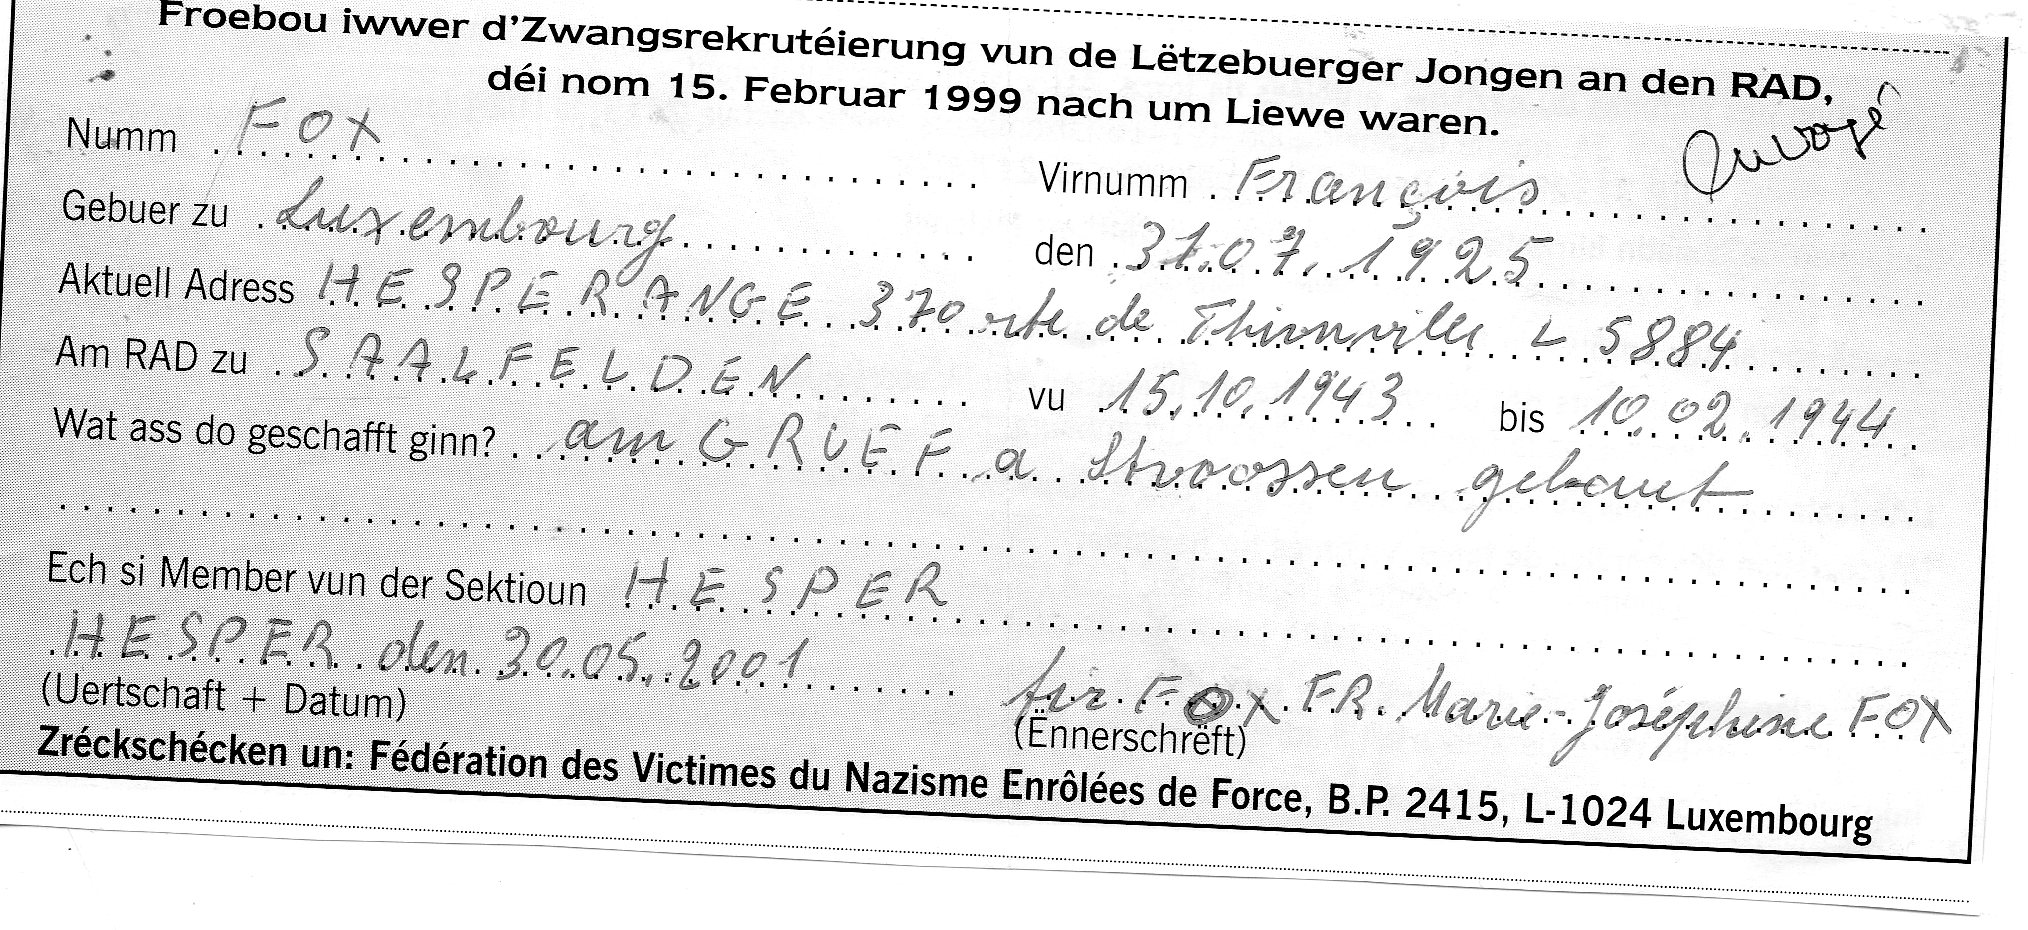 Froebou iwwer d'Zwangsrekrutéierung vun de Lëtzebuerger Jongen an den RAD,
déi nom 15. Februar 1999 nach um Liewe waren.
Numm FOX Virnumm François
Gebuer zu Luxembourg den 31.07.1925
Aktuell Adress HESPERANGE 370 rte de Thionville L 5884
Am RAD zu SAALFELDEN vu 15.10.1943 bis 10.02.1944
Wat ass do geschafft ginn? am GRUEF a Stroossen gebaut
Ech si Member vun der Sektioun HESPER
HESPER den 30.05.2001 fir FOX FR. Marie-Joséphine FOX
(Uertschaft + Datum) (Ënnerschrëft)
Zréckschécken un: Fédération des Victimes du Nazisme Enrôlées de Force, B.P. 2415, L-1024 Luxembourg